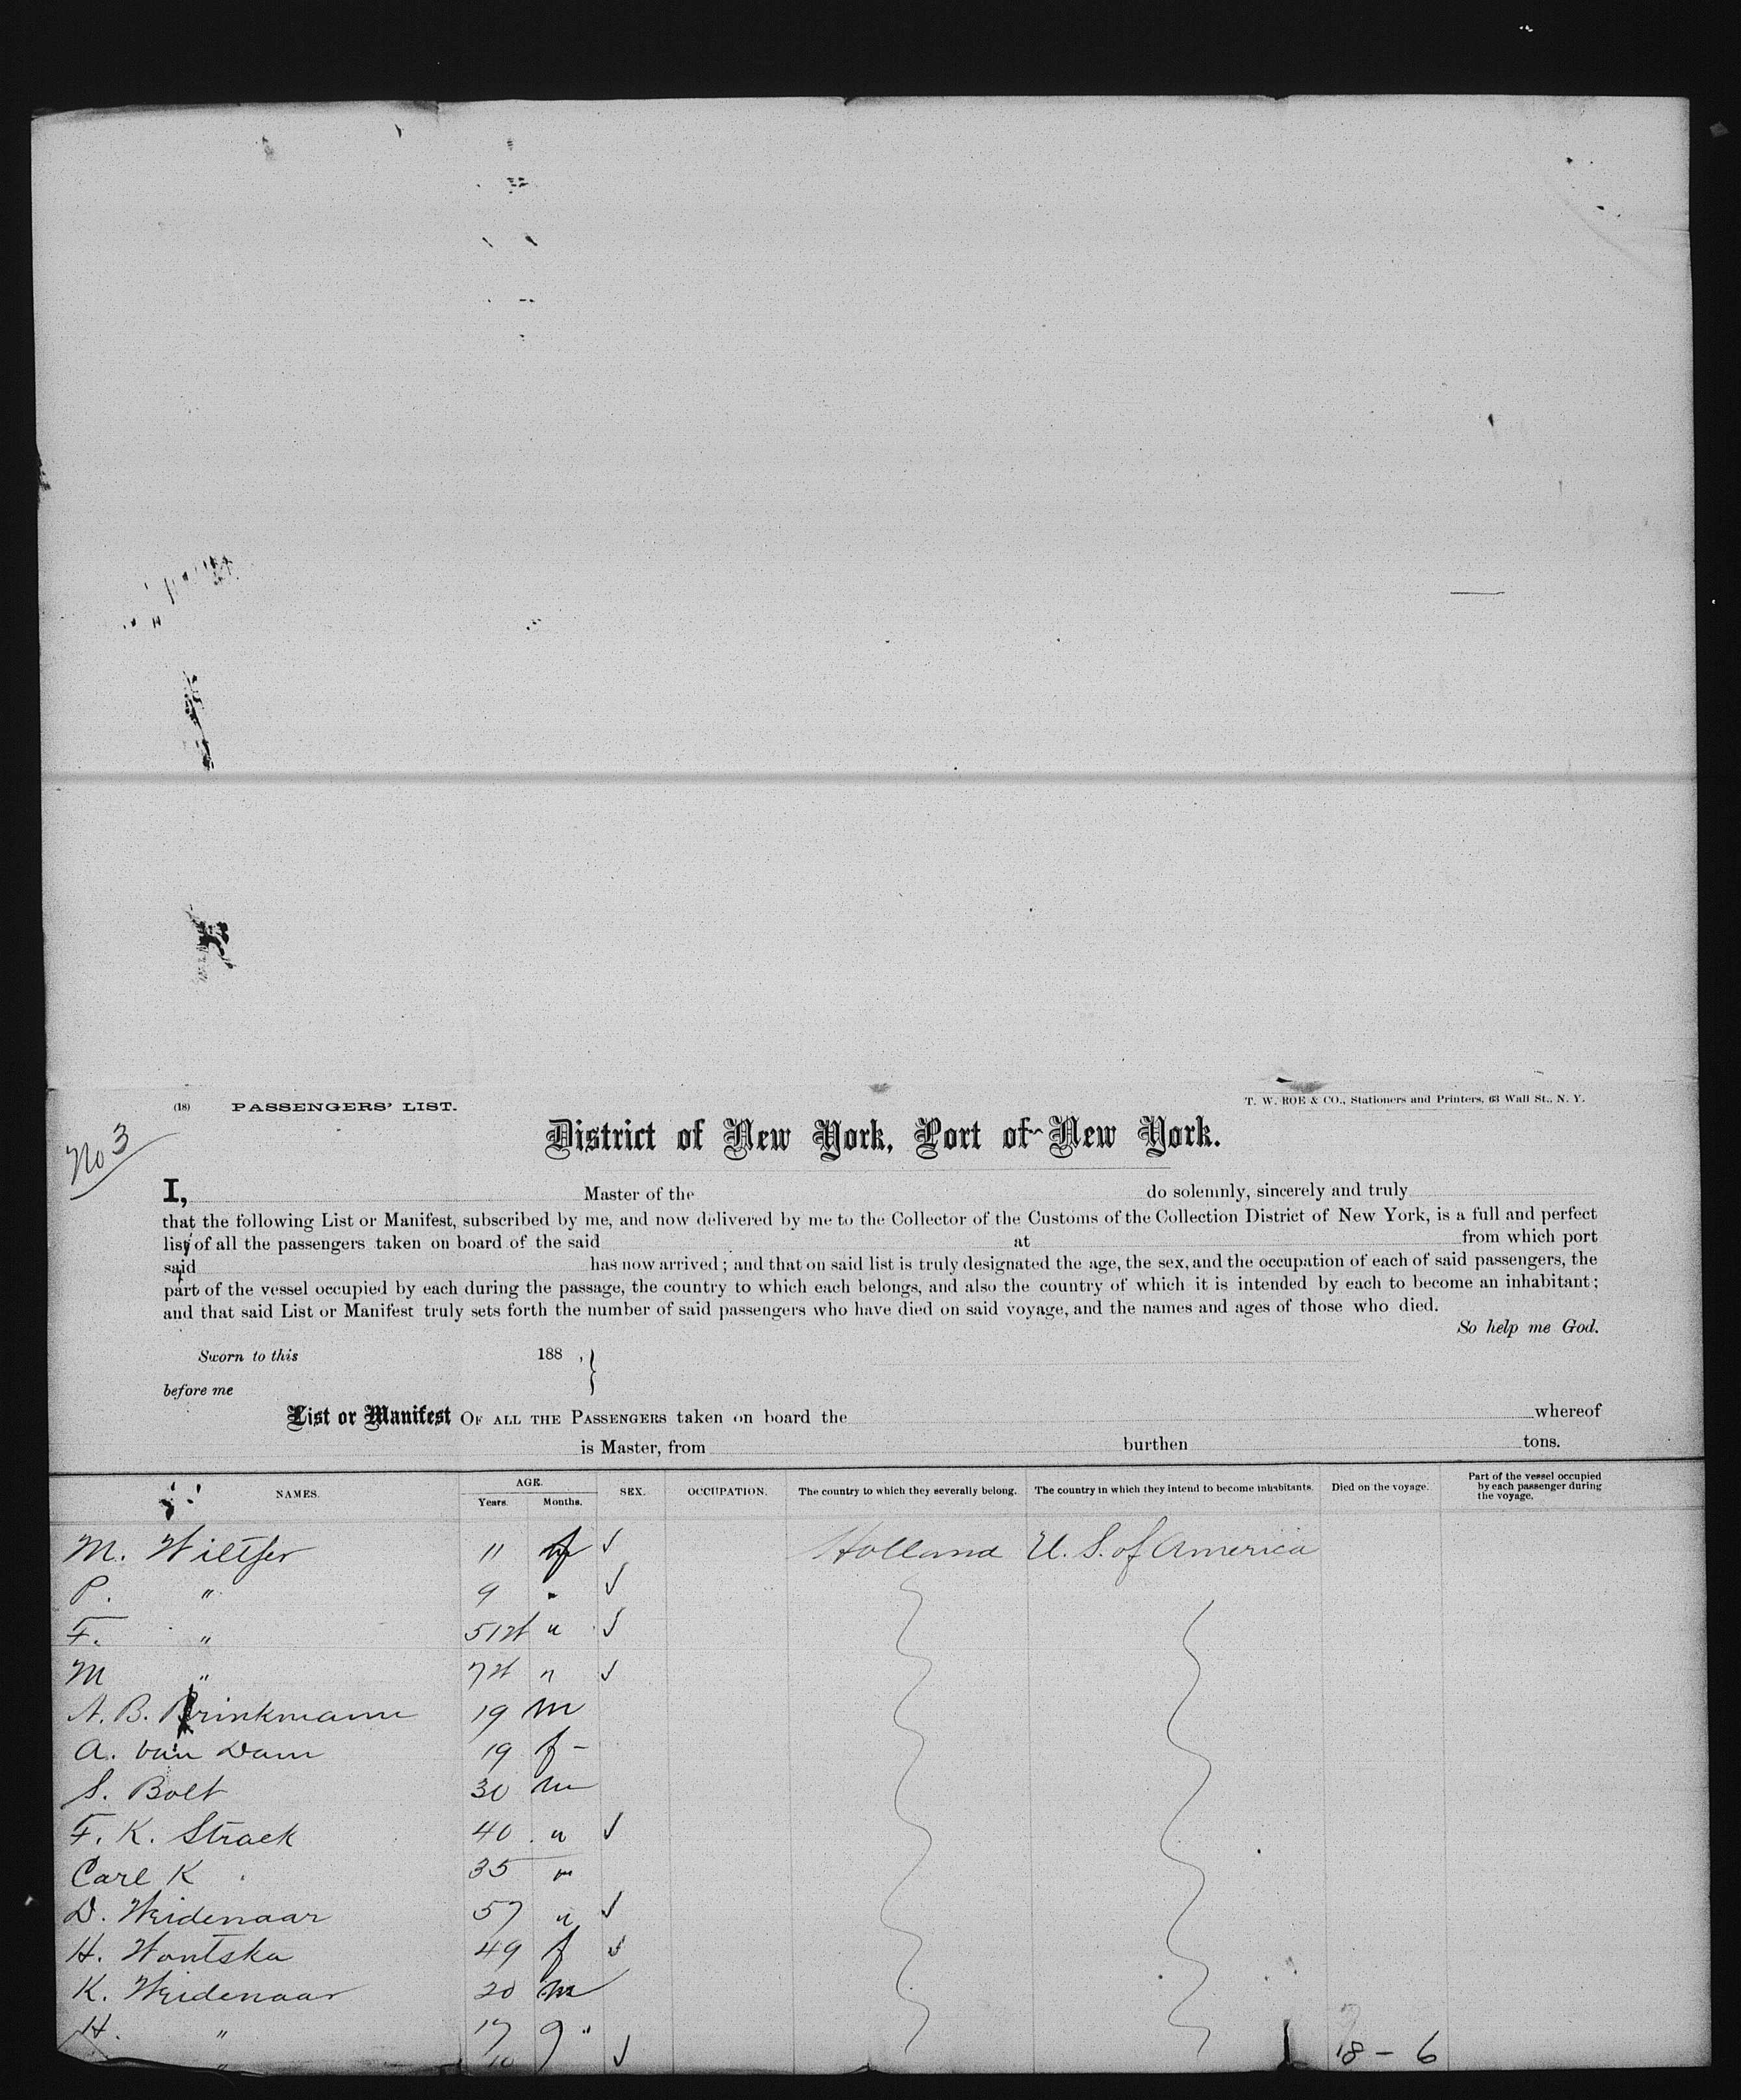 (18) PASSENGERS' LIST.
T. W. ROE & CO., Stationers and Printers, 63 Wall St., N. Y.
No 3
District of New York, Port of New York.
I, Master of the do solemnly, sincerely and truly
that the following List or Manifest, subscribed by me, and now delivered by me to the Collector of the Customs of the Collection District of New York, is a full and perfect
list of all the passengers taken on board of the said at from which port
said has now arrived; and that on said list is truly designated the age, the sex, and the occupation of each of said passengers, the
part of the vessel occupied by each during the passage, the country to which each belongs, and also the country of which it is intended by each to become an inhabitant;
and that said List or Manifest truly sets forth the number of said passengers who have died on said voyage, and the names and ages of those who died.
So help me God.
Sworn to this 188 ,}
before me
List or Manifest OF ALL THE PASSENGERS taken on board the whereof
is Master, from burthen tons.
NAMES. AGE. Years. Months. SEX. OCCUPATION. The country to which they severally belong. The country in which they intend to become inhabitants. Died on the voyage. Part of the vessel occupied by each passenger during the voyage.
M. 11 f ✓ Holland U. S. of America
P. " 9 " ✓
F. " " ✓
M " " ✓
A. B. Brinkmann 19 m
A. van Dam 19 f -
S. Bolt 30 m
F. K. Strack 40 " ✓
Carl K 35 "
D. Weidenaar 57 " ✓
H. Wontska 49 f ✓
K. Weidenaar 20 m
H. " 17 "
" 10 ✓ 18 - 6